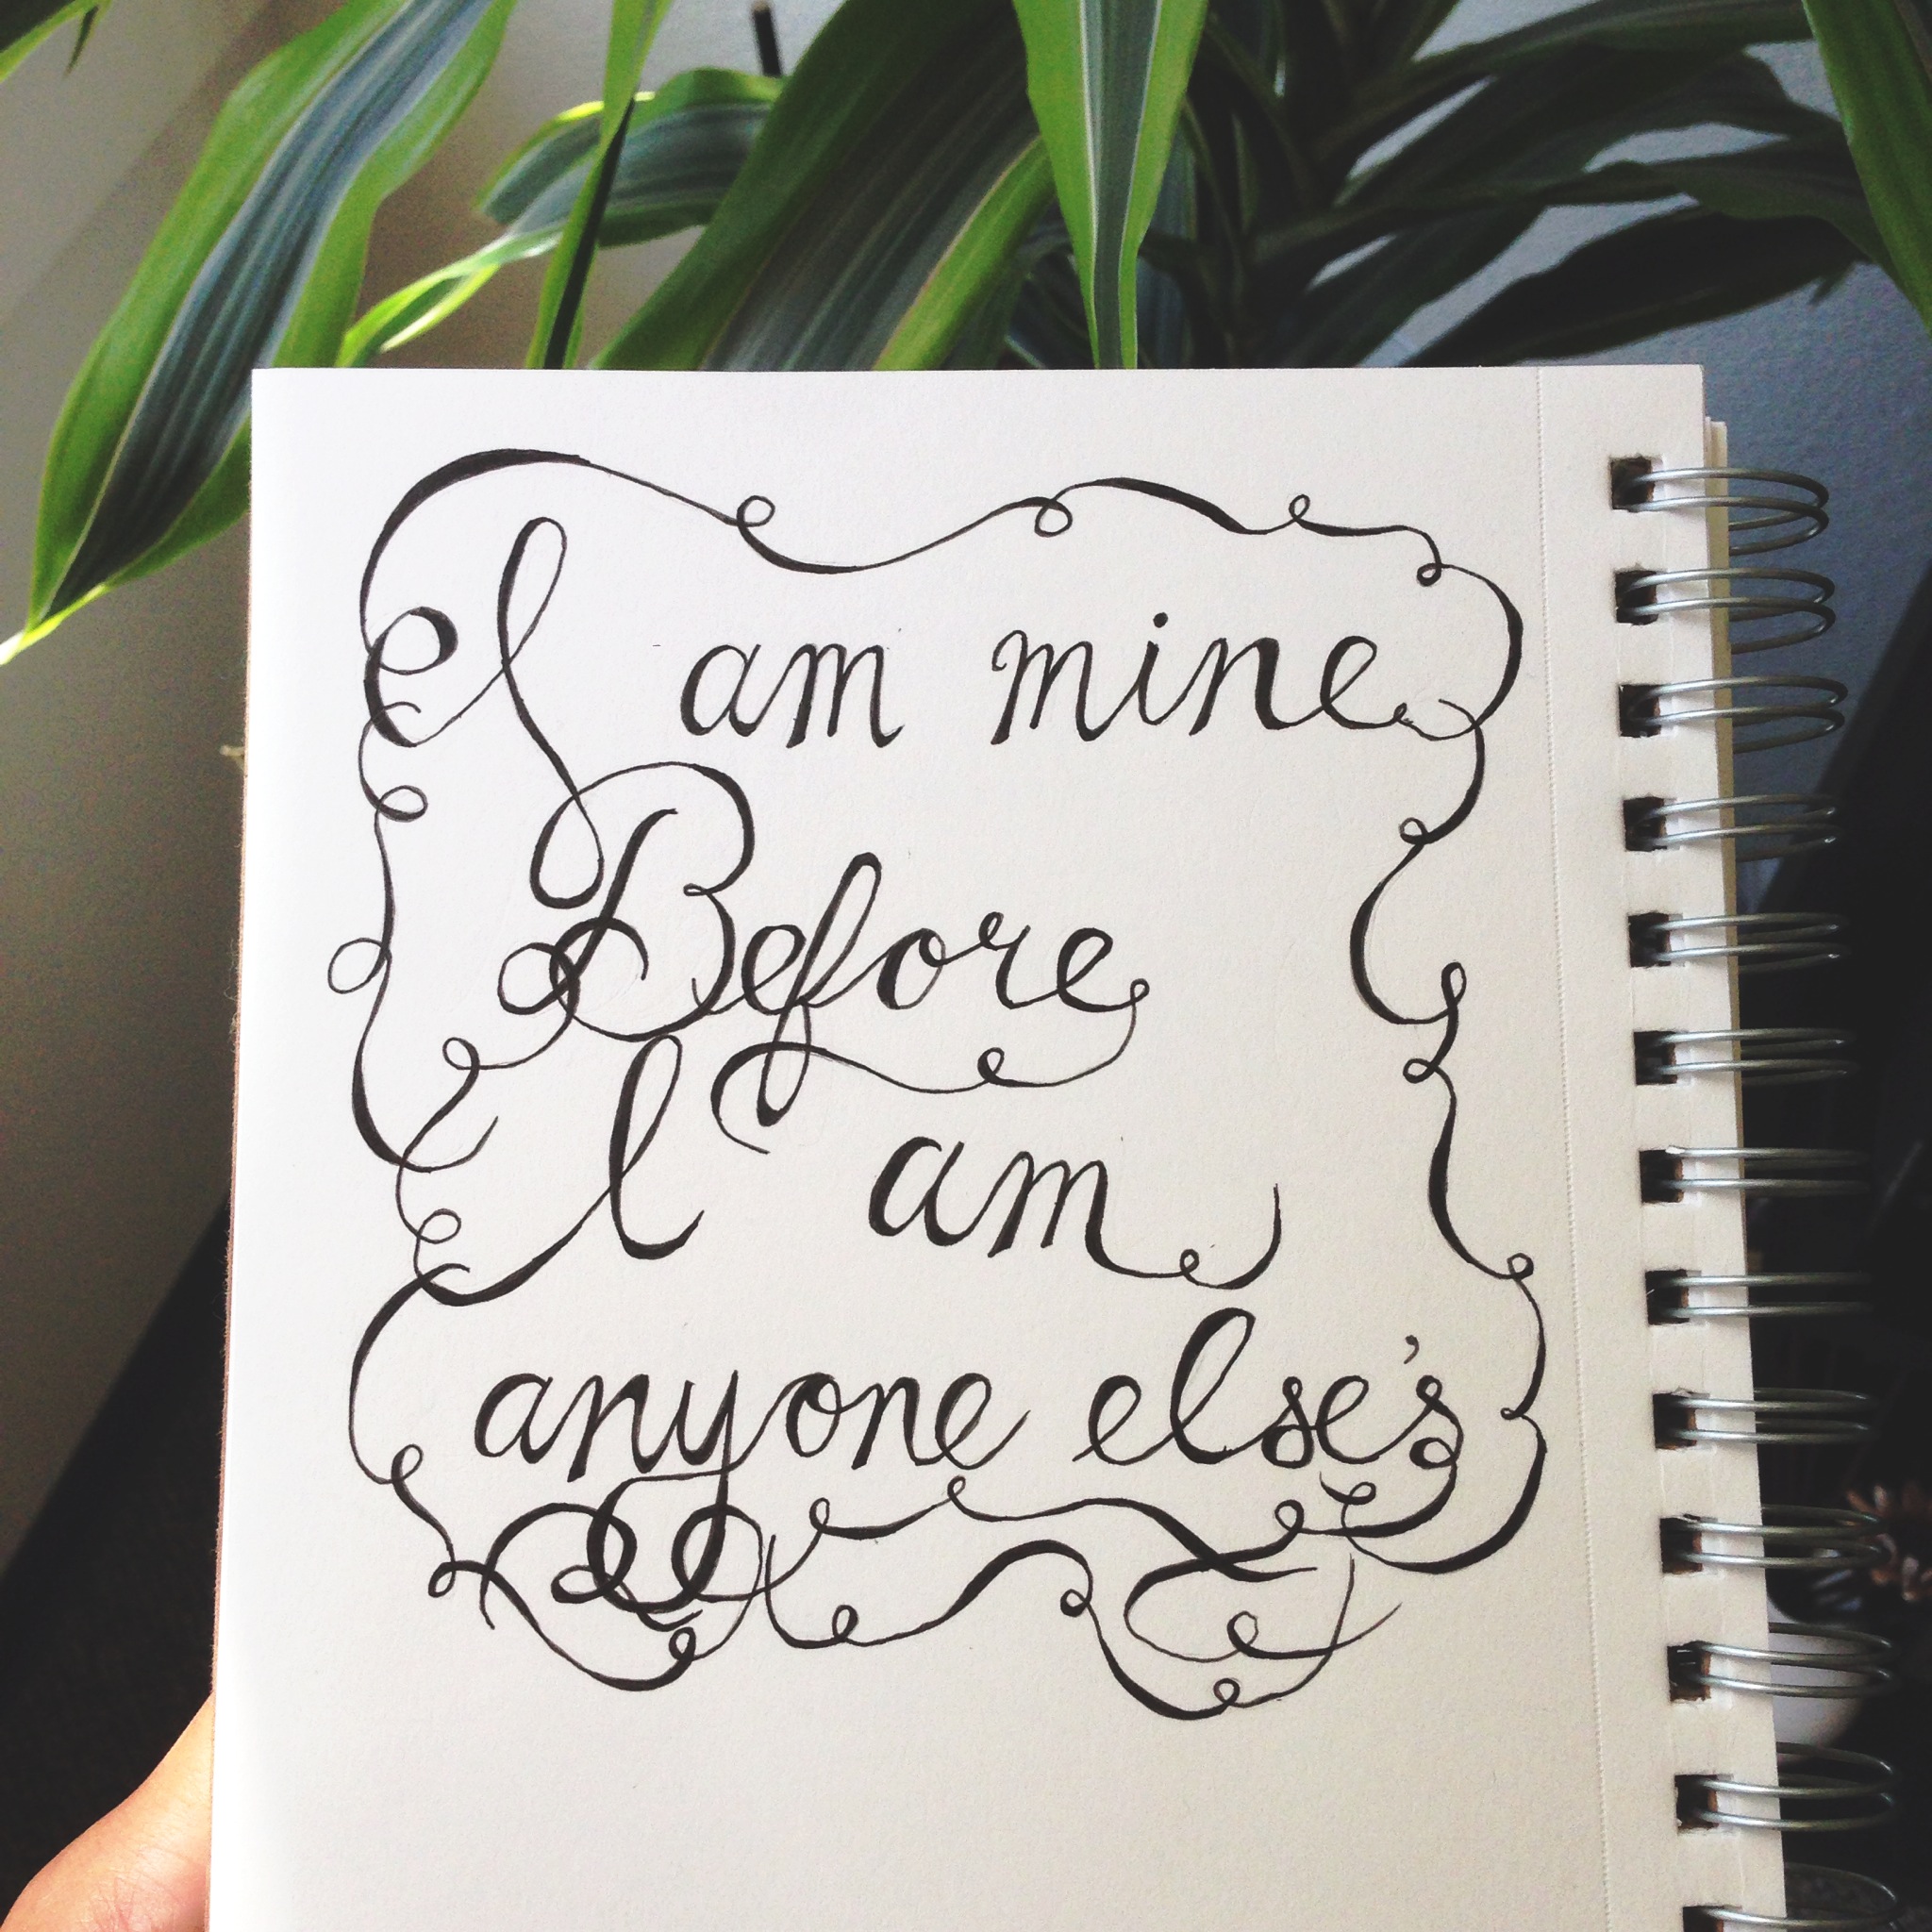 I am mine
Before
I am
anyone else's